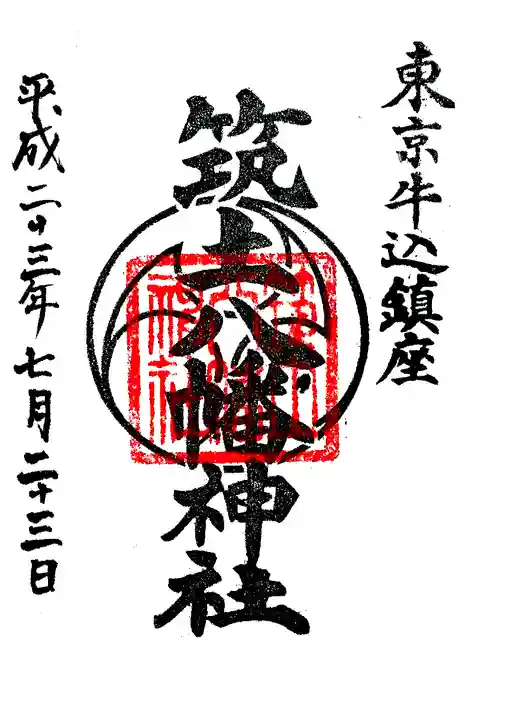 東京牛込鎮座
筑土八幡神社
平成二十三年七月二十三日